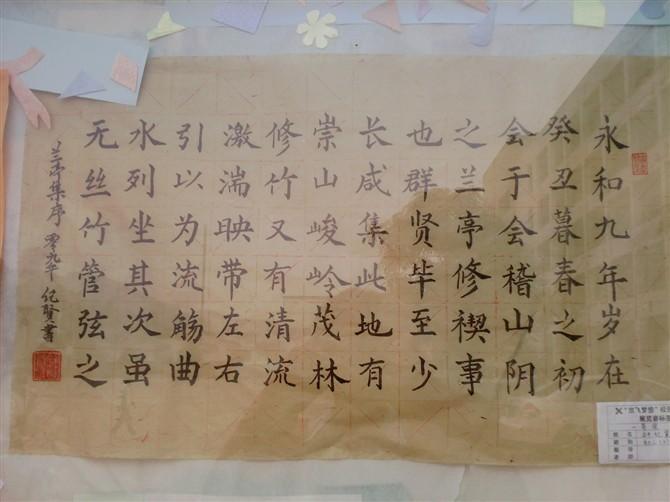 永和九年岁在
癸丑暮春之初
会于会稽山阴
之兰亭修禊事
也群贤毕至少
长咸集此地有
崇山峻岭茂林
修竹又有清流
激湍映带左右
引以为流觞曲
水列坐其次虽
无丝竹管弦之
兰亭集序 零九年 纪贤书